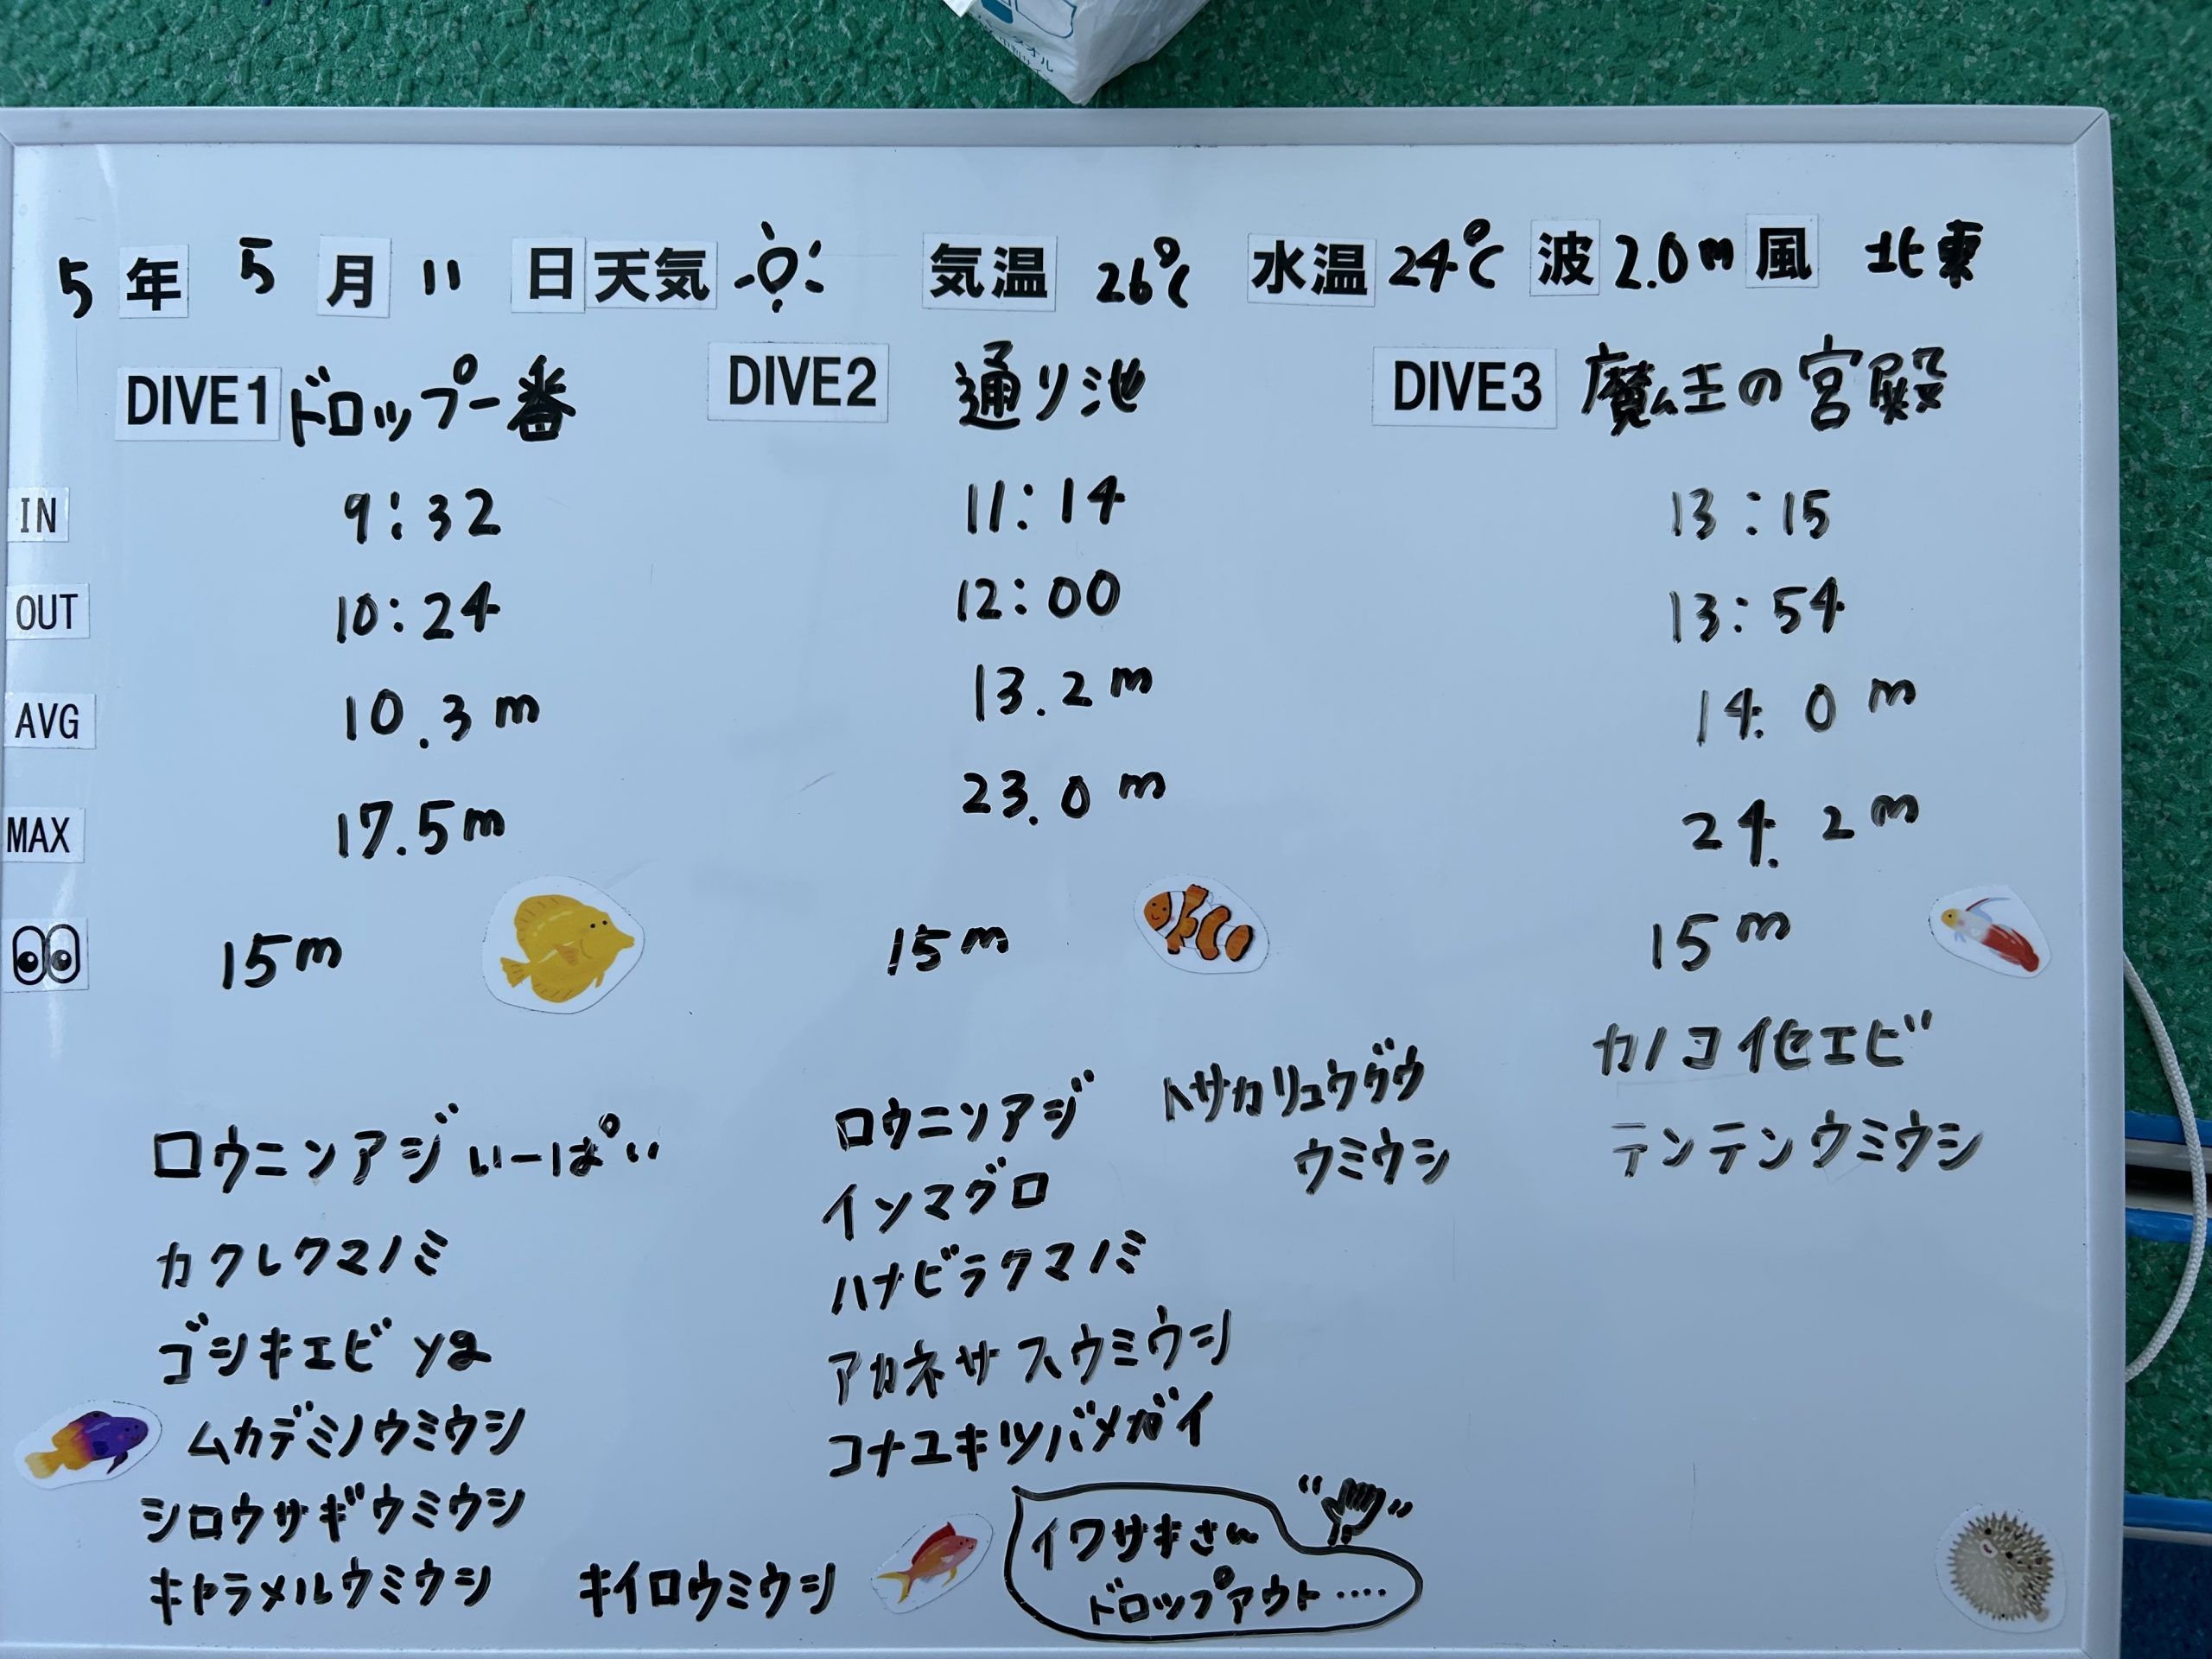 5年 5月 11日 天気 気温 26℃ 水温 24℃ 波 2.0m 風 北東
DIVE1 ドロップ一番 DIVE2 通り池 DIVE3 魔王の宮殿
IN 9:32 11:14 13:15
OUT 10:24 12:00 13:54
AVG 10.3m 13.2m 14.0m
MAX 17.5m 23.0m 24.2m
15m 15m 15m
ロウニンアジ いーぱい
カクレクマノミ
ゴシキエビ yg
ムカデミノウミウシ
シロウサギウミウシ
キャラメルウミウシ キイロウミウシ
ロウニンアジ
イソマグロ
ハナビラクマノミ
アカネサスウミウシ
コナユキツバメガイ
ヘサカリュウグウ
ウミウシ
イワサキさん
ドロップアウト‥‥
カノコイセエビ
テンテンウミウシ